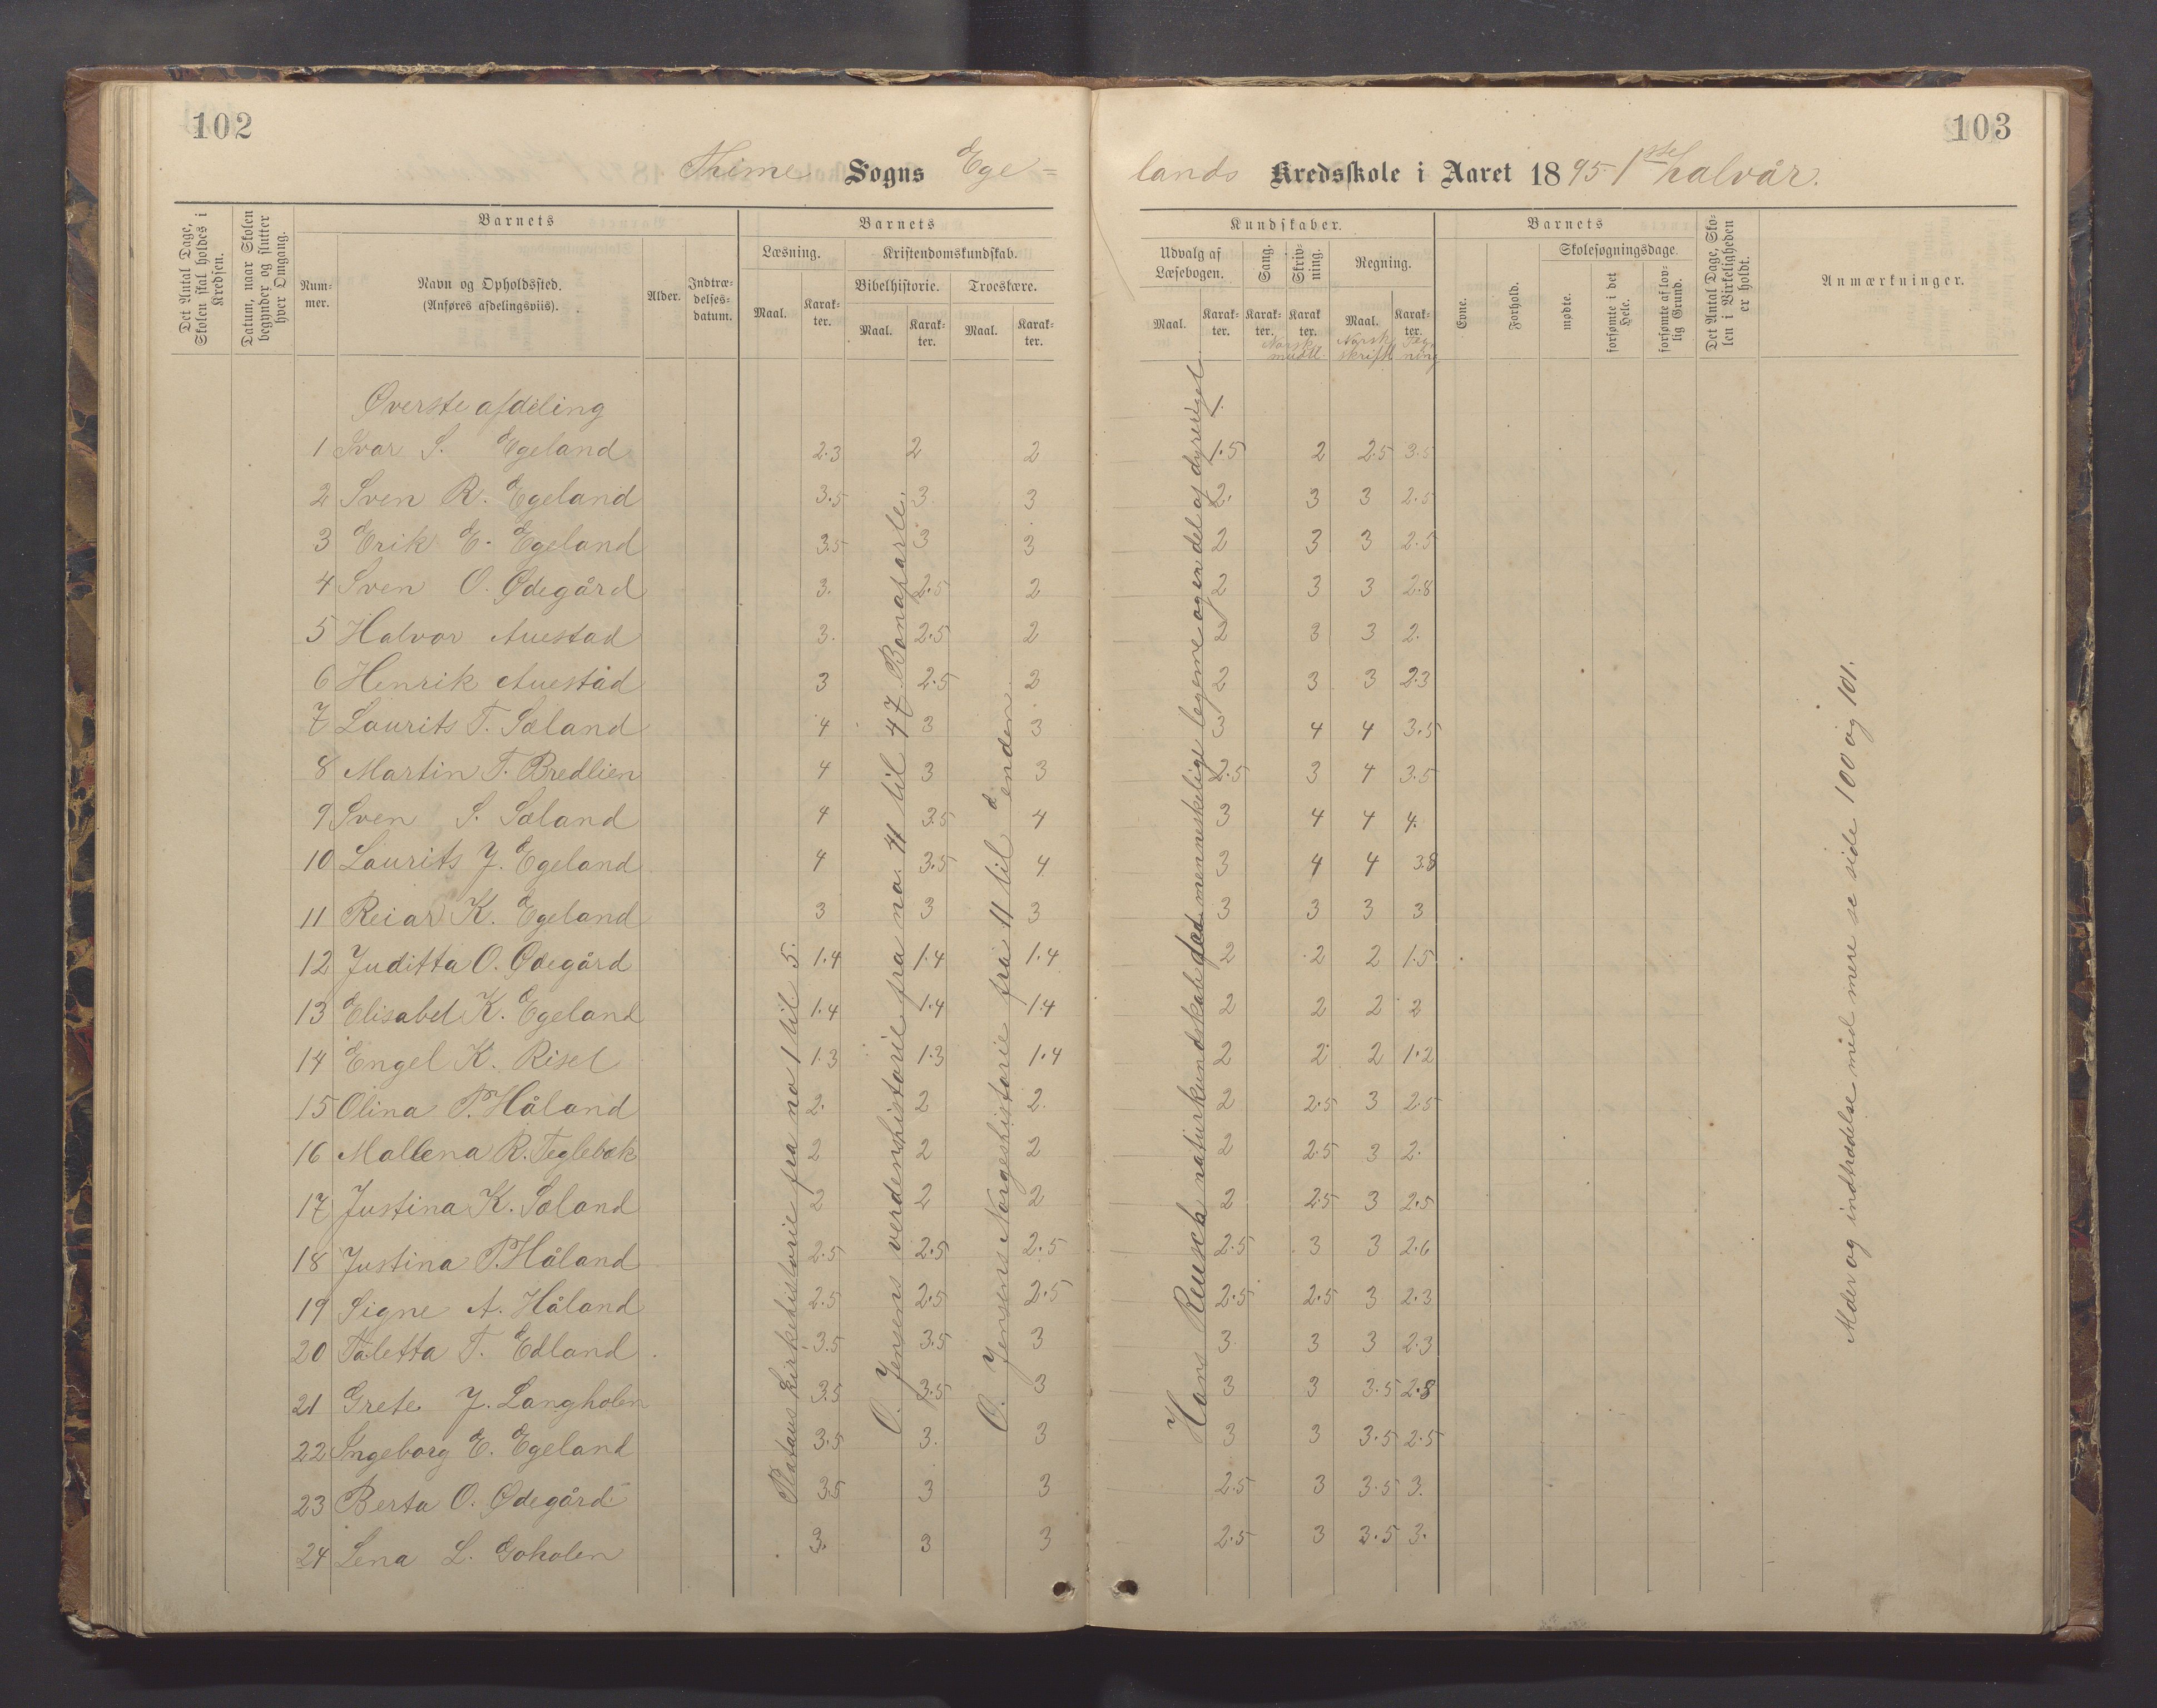 102
Thime Sogns Ege=
Det Antal Dage, Skolen skal holdes i Kredsen.
Datum, naar Skolen begynder og slutter hver Omgang.
Barnets
Num-mer.
Navn og Opholdssted.
(Anføres afdelingsviis).
Alder.
Indtræ-delses-datum.
Barnets
Læsning.
Maal.
Karak-ter.
Kristendomskundskab.
Bibelhistorie.
Maal.
Karak-ter.
Troeslære.
Maal.
Karak-ter.
Øverste afdeling
1 Ivar S. Egeland 2.3 2 2
2 Sven R. Egeland 3.5 3 3
3 Erik E. Egeland 3.5 3 3
4 Sven O. Ødegård 3. 2.5 2
5 Halvor Auestad 3. 2.5 2
6 Henrik Auestad 3 2.5 2
7 Laurits T. Sæland 4 3 3
8 Martin T. Bredlien 4 3 3
9 Sven S. Sæland 4 3.5 4
10 Laurits J. Egeland 4 3.5 4
11 Reiar K. Egeland 3 3 3
12 Juditta O. Ødegård 1.4 1.4 1.4
13 Elisabet K. Egeland 1.4 1.4 1.4
14 Engel K. Risel 1.3 1.3 1.4
15 Olina P. Håland 2. 2 2.
16 Mallena R. Teglebæk 2 2 2
17 Justina K. Sæland 2 2 2
18 Justina P. Håland 2.5 2.5 2.5
19 Signe A. Håland 2.5 2.5 2.5
20 Taletta T. Edland 3.5 3.5 3
21 Grete J. Langholen 3.5 3.5 3
22 Ingeborg E. Egeland 3.5 3. 3
23 Berta O. Ødegård 3.5 3 3
24 Lena L. Goholen 3. 3 3
kirkehistorie fra no 1 til 5.
O. Jensens verdenshistorie fra no. 41 til 47 Bonaparte.
O. Jensens Norgeshistorie fra 11 til enden
103
lands Kredsskole i Aaret 1895 1ste halvår.
Kundskaber.
Udvalg af Læsebogen.
Maal.
Karak-ter.
Sang.
Karak-ter.
Skriv-ning.
Karak ter.
Norsk mudtl.
Regning.
Maal.
Norsk skriftl
Karak-ter.
Teg-ning
Barnets
Evne.
Forhold.
Skolesøgningsdage.
mødte.
forsømte i det Hele.
forsømte af lov-lig Grund.
Det Antal Dage, Sko-len i Virkeligheden er holdt.
Anmærkninger.
1.
1.5 2 2.5 3.5
2. 3 3 2.5
2 3 3 2.5
2 3 3 2.8
2 3 3 2.
2 3 3 2.3
3 4 4 3.5
2.5 3 4 3.5
3 4 4 4.
3 4 4 3.8
3 3 3 3
2 2 2 1.5
2 2 2 2
2 2 2 1.2
2 2.5 3 2.5
2 2.5 3 2.
2 2.5 3 2.5
2.5 3 3 2.6
2.5 2.5 3 2.3
3 3 3 2.3
3 3 3.5 2.8
3 3 3.5 2.5
2.5 3 3.5 3.
2.5 3 3.5 3.
Hans Reusch naturkundskab det menneskelige legeme og en del af dyreriget
Alder og indtrædelse med mere se side 100 og 101.